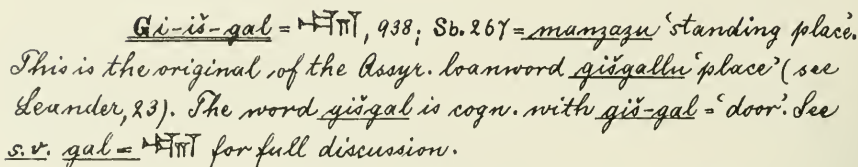 Gi-iš-gal = 938; Sb. 267 = manzazu 'standing place'.
This is the original of the Assyr. loanword gišgallu 'place' (see
Leander, 23). The word gišgal is cogn. with giš-gal = 'door'. See
s.v. gal = for full discussion.